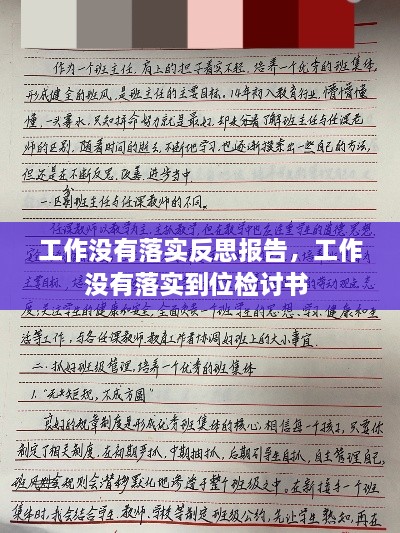 作为一个班主任,肩上的担子着实不轻,培养一个优秀的班集体,
形成健全的班风,是班主任的主要目标。14年初入教育行业,懵懵懂
懂,一头雾水,只知拼命努力就是最好,却未分清了解班主任与任课老
师的区别,随着时间的逝去,不断地学习,也逐渐摸索出一些自己的方法,
但还是在不断反思、改善、进步当中。
一、区别班主任与任课教师的不同。
工作没有落实反思报告,工作
没有落实到位检讨书
度;关注学生的健康和安全,全面负责一个班学生的思想、学习、健康和生
活等工作,与各任课教师、教育工作者协调好班上的大小事宜。
二、抓好班级管理,培养一个优秀的班集体
1.“无规矩,不成方圆”
良好的规章制度是形成优秀班集体的核心,相信每一个孩子,只要你
制定了相关制度,在初期严抓,中期抽抓,后期引导自抓,自主管理自己,
班风和规则会潜移默化地渗透于整个班级之中。在新接手一个班
集体时,我会结合学生、教师、学校等制定班级公约,先让学生熟知,再在